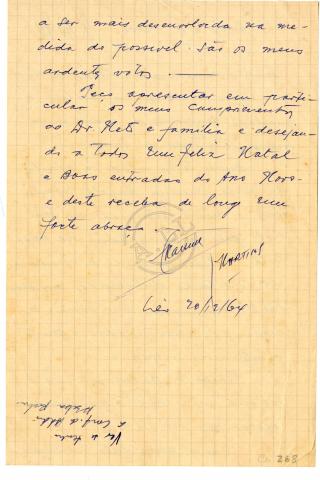 a ser mais desenvolvida na me-
dida do possivel. São os meus
ardentes votos.
Peço apresentar em parti-
cular os meus cumprimentos
ao Dr. Neto e familia e desejan-
do a todos um feliz Natal
e Boas entradas do Ano Novo
e deste receba de longe um
forte abraço.
Martins
20/12/64
268